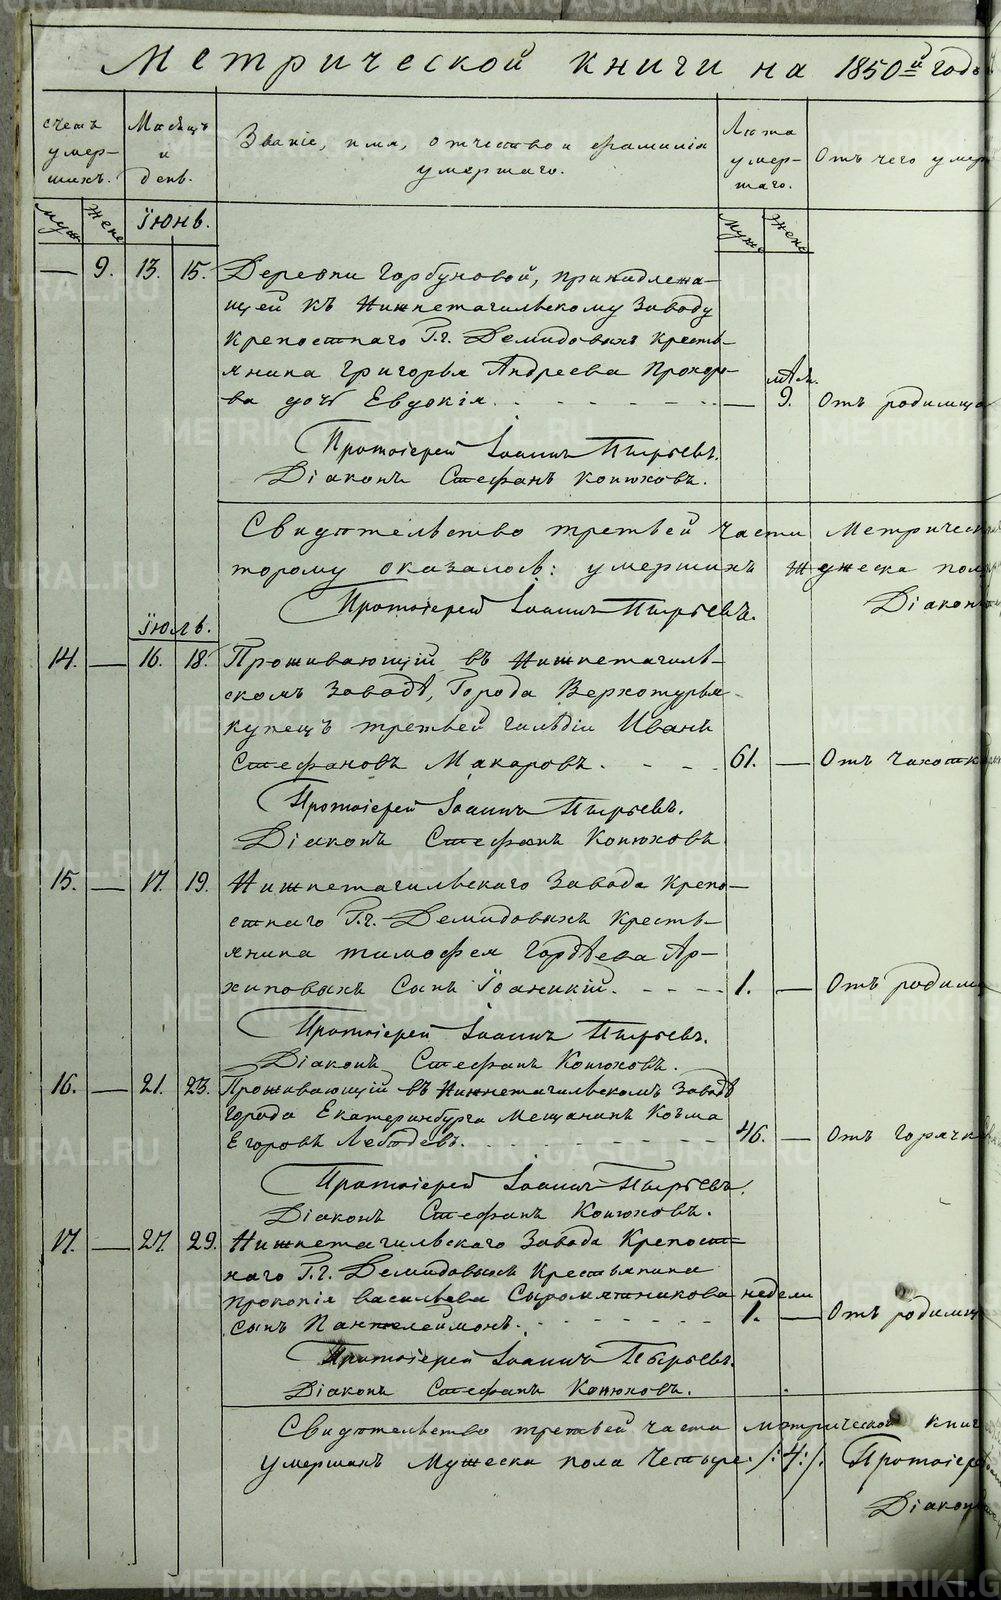 Метрической книги на 1850й годъ
счетъ умер-шихъ.
Мѣсяцъ и день.
Званіе, имя, отчество и фамилія умершаго.
Лѣта умер-шаго.
Отъ чего умер
муж
жене
Іюнь.
мужс
женс
— 9. 13. 15. Деревни Горбуновой, принадлежа-
щей къ Нижнетагильскому Заводу
крепостнаго Г.г. Демидовыхъ кресть-
янина Григорья Андреева Прохоро-
ва дочь Евдокія. — 9. Отъ родимца
Протоіерей Іоаннъ Пырьевъ.
Діаконъ Стефанъ Конюховъ.
Свидѣтельство третьей части Метрическ
торому оказалось: умершихъ мужеска пол
Протоіерей Іоаннъ Пырьевъ. Діаконъ
Іюль.
14. — 16. 18. Проживающій въ Нижнетагиль-
скомъ заводѣ, Города Верхотурья
купецъ третьей гильдіи Иванъ
Стефановъ Макаровъ. 61. — Отъ чахотки
Протоіерей Іоаннъ Пырьевъ.
Діаконъ Стефанъ Конюховъ
15. — 17. 19. Нижнетагильскаго Завода крепо-
стнаго Г.г. Демидовыхъ кресть-
янина тимофея Гордѣева Ар-
хиповыхъ сынъ Іоаникій. 1. — Отъ родим
Протоіерей Іоаннъ Пырьевъ.
Діаконъ Стефанъ Конюховъ.
16. — 21. 23. Проживающій въ Нижнетагильскомъ Заводѣ
города Екатеринбурга Мещанинъ Козма
Егоровъ Лебедевъ. 46. — Отъ горячк
Протоіерей Іоаннъ Пырьевъ.
Діаконъ Стефанъ Конюховъ.
17. — 27. 29. Нижнетагильскаго Завода Крепост-
наго Г.г. Демидовыхъ Крестьянина
прокопія васильева Сыромятникова недели
сынъ Пантелеймонъ. 1. — Отъ родимц
Протоіерей Іоаннъ Пырьевъ.
Діаконъ Стефанъ Конюховъ.
Свидѣтельство третьей части метрической книг
умершихъ Мужеска пола Четыре /:4:/. Протоіере
Діаконъ
METRIKI.GASO-URAL.RU